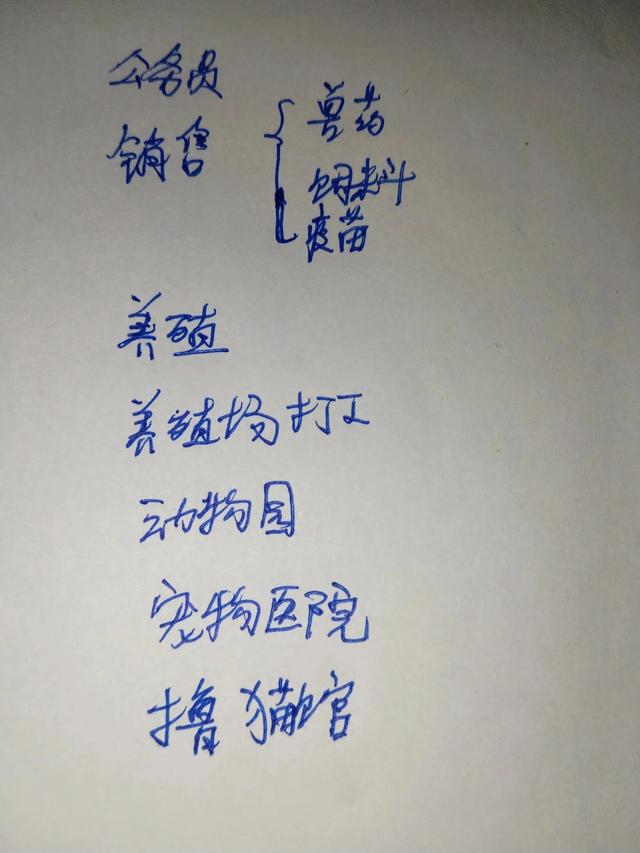 公务员
销售 { 兽药
饲料
疫苗
养殖
养殖场打工
动物园
宠物医院
撸猫馆